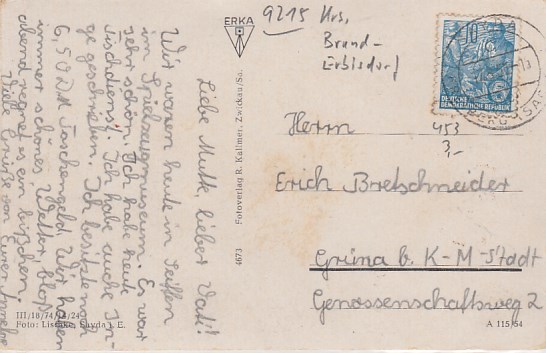 Liebe Mutti, lieber Vati!
Wir waren heute in Seiffen
im Spielzeugmuseum. Es war
sehr schön. Ich habe heute
Tischdienst. Ich habe auch Ein-
ge geschrieben. Ich besitze noch
6,50 DM Taschengeld. Wir haben
immer schönes Wetter, bloß
abend regnet es ein bißchen.
Viele Grüße von Eurer
III/18/74/15/24
Foto: Lischke, Sayda i. E.
ERKA
4673 Fotoverlag R. Kallmer, Zwickau/Sa.
9215 Krs,
Brand-
Erbisdorf
10
DEUTSCHE
DEMOKRATISCHE REPUBLIK
Herrn
453
3,-
Erich Bretschneider
Grüna b. K-M-Stadt
Genossenschaftsweg 2
A 115/54